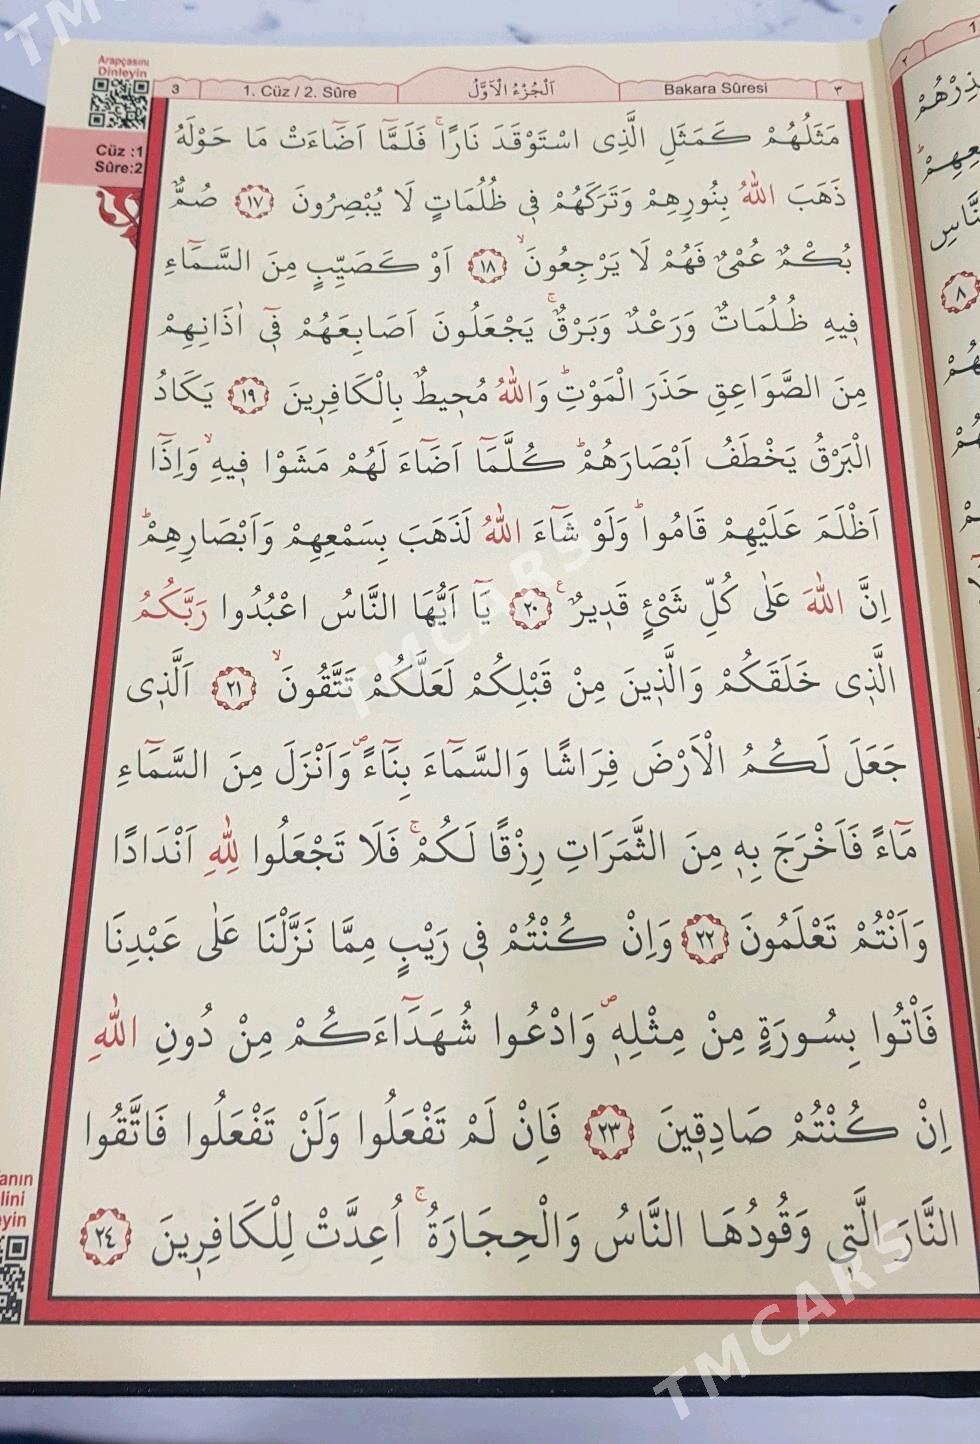 Arapçasını
Dinleyin
3
1. Cüz / 2. Sûre
اَلْجُزْءُ الْاَوَّلُ
Bakara Sûresi
٣
Cüz :1
Sûre:2
مَثَلُهُمْ كَمَثَلِ الَّذِى اسْتَوْقَدَ نَارًاۚ فَلَمَّٓا اَضَٓاءَتْ مَا حَوْلَهُ
ذَهَبَ اللّٰهُ بِنُورِهِمْ وَتَرَكَهُمْ فٖى ظُلُمَاتٍ لَا يُبْصِرُونَ ﴿١٧﴾ صُمٌّ
بُكْمٌ عُمْىٌ فَهُمْ لَا يَرْجِعُونَۙ ﴿١٨﴾ اَوْ كَصَيِّبٍ مِنَ السَّمَٓاءِ
فٖيهِ ظُلُمَاتٌ وَرَعْدٌ وَبَرْقٌۚ يَجْعَلُونَ اَصَابِعَهُمْ فٖٓى اٰذَانِهِمْ
مِنَ الصَّوَاعِقِ حَذَرَ الْمَوْتِؕ وَاللّٰهُ مُحٖيطٌ بِالْكَافِرٖينَ ﴿١٩﴾ يَكَادُ
الْبَرْقُ يَخْطَفُ اَبْصَارَهُمْؕ كُلَّمَٓا اَضَٓاءَ لَهُمْ مَشَوْا فٖيهِۙ وَاِذَٓا
اَظْلَمَ عَلَيْهِمْ قَامُواؕ وَلَوْ شَٓاءَ اللّٰهُ لَذَهَبَ بِسَمْعِهِمْ وَاَبْصَارِهِمْؕ
اِنَّ اللّٰهَ عَلٰى كُلِّ شَىْءٍ قَدٖيرٌࣖ ﴿٢٠﴾ يَٓا اَيُّهَا النَّاسُ اعْبُدُوا رَبَّكُمُ
الَّذٖى خَلَقَكُمْ وَالَّذٖينَ مِنْ قَبْلِكُمْ لَعَلَّكُمْ تَتَّقُونَۙ ﴿٢١﴾ اَلَّذٖى
جَعَلَ لَكُمُ الْاَرْضَ فِرَاشًا وَالسَّمَٓاءَ بِنَٓاءًࣕ وَاَنْزَلَ مِنَ السَّمَٓاءِ
مَٓاءً فَاَخْرَجَ بِهٖ مِنَ الثَّمَرَاتِ رِزْقًا لَكُمْۚ فَلَا تَجْعَلُوا لِلّٰهِ اَنْدَادًا
وَاَنْتُمْ تَعْلَمُونَ ﴿٢٢﴾ وَاِنْ كُنْتُمْ فٖى رَيْبٍ مِمَّا نَزَّلْنَا عَلٰى عَبْدِنَا
فَاْتُوا بِسُورَةٍ مِنْ مِثْلِهٖࣕ وَادْعُوا شُهَدَٓاءَكُمْ مِنْ دُونِ اللّٰهِ
اِنْ كُنْتُمْ صَادِقٖينَ ﴿٢٣﴾ فَاِنْ لَمْ تَفْعَلُوا وَلَنْ تَفْعَلُوا فَاتَّقُوا
النَّارَ الَّتٖى وَقُودُهَا النَّاسُ وَالْحِجَارَةُۚ اُعِدَّتْ لِلْكَافِرٖينَ ﴿٢٤﴾
TMCARS
TMCARS